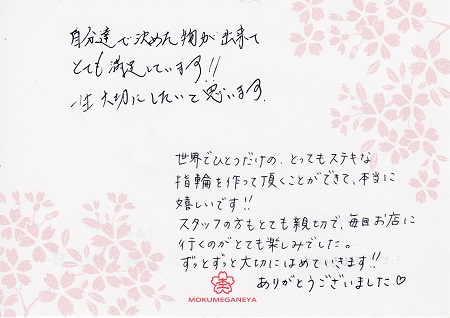 自分達で決めた物が出来て
とても満足しています!!
一生大切にしたいと思います.
世界でひとつだけの、とってもステキな
指輪を作って頂くことができて、本当に
嬉しいです!!
スタッフの方もとても親切で、毎回お店に
行くのがとても楽しみでした。
ずっとずっと大切にはめていきます!!
ありがとうございました♡
MOKUMEGANEYA